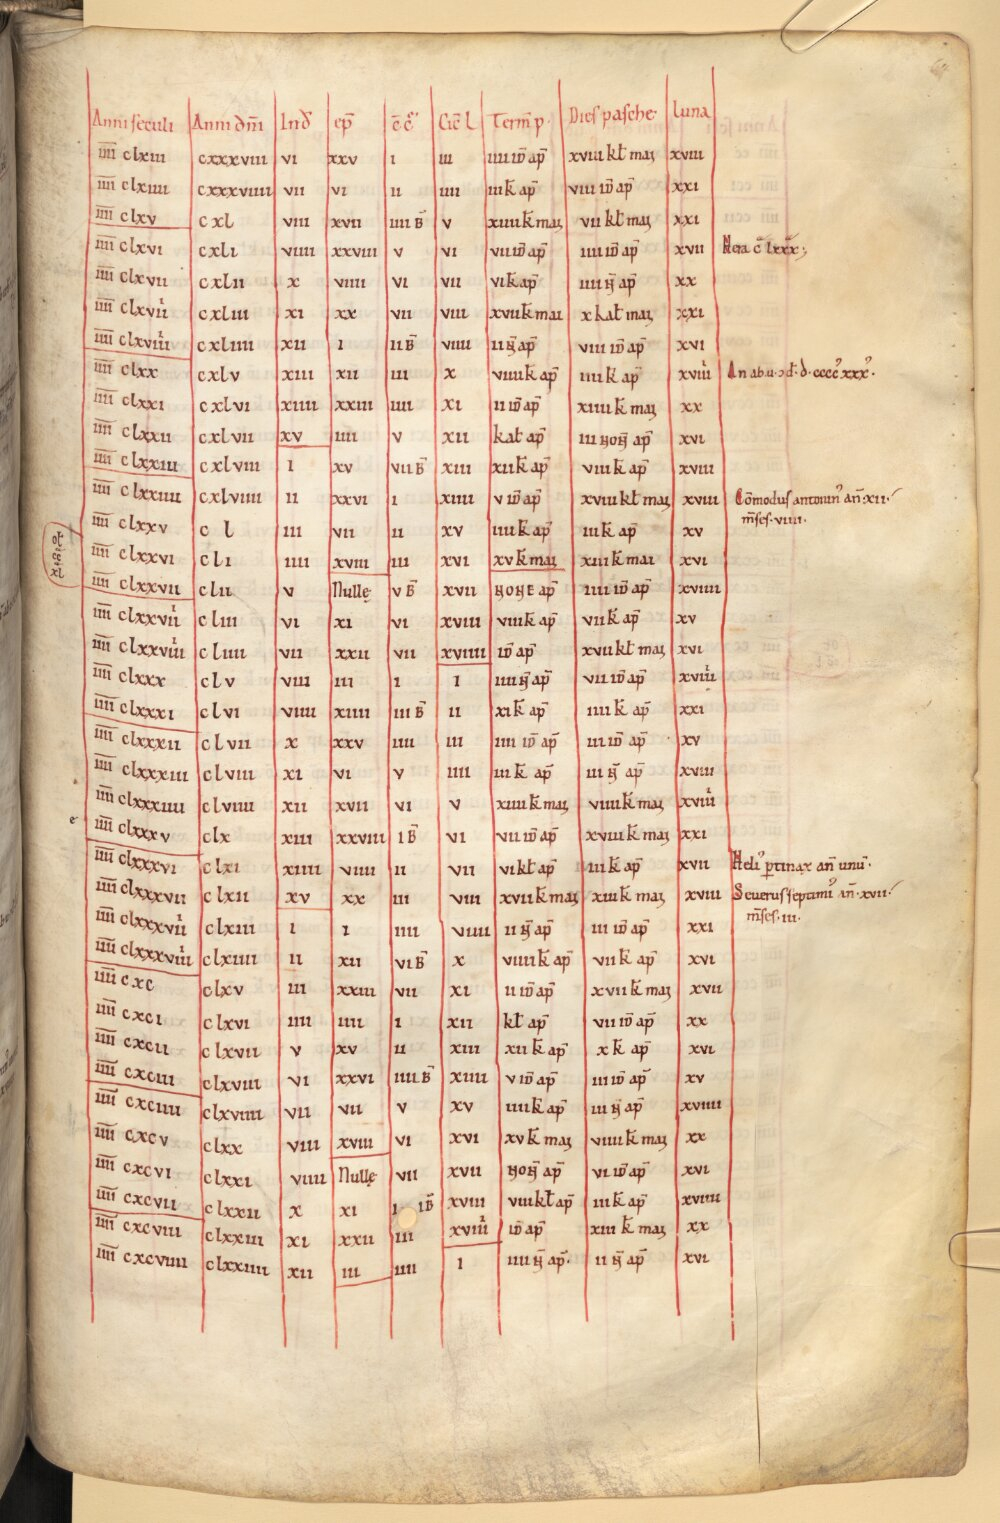 Anni seculi Anni dn̄i Ind̄ ep̄ c̄c̄ Cic̄l Term̄ p Dies pasche luna
īīīī clxiii cxxxviii vi xxv i iii iiii id̄ ap̄ xviii kl̄ mai xviii
īīīī clxiiii cxxxviiii vii vi ii iiii iii k̄ ap̄ viii id̄ ap̄ xxi
īīīī clxv cxl viii xvii iiii B̄ v xiiii k̄ mai vii kl̄ mai xxi
īīīī clxvi cxli viiii xxviii v vi vii id̄ ap̄ iiii id̄ ap̄ xvii
īīīī clxvii cxlii x viiii vi vii vi k̄ ap̄ iiii n̄ ap̄ xx
īīīī clxviii cxliii xi xx vii viii xvii k̄ mai x kal̄ mai xxi
īīīī clxviiii cxliiii xii i ii B̄ viiii ii n̄ ap̄ viii id̄ ap̄ xvi
īīīī clxx cxlv xiii xii iii x viiii k̄ ap̄ iiii k̄ ap̄ xviiii
īīīī clxxi cxlvi xiiii xxiii iiii xi ii id̄ ap̄ xiiii k̄ mai xx
īīīī clxxii cxlvii xv iiii v xii kal̄ ap̄ iii non̄ ap̄ xvi
īīīī clxxiii cxlviii i xv vii B̄ xiii xii k̄ ap̄ viii k̄ ap̄ xviii
īīīī clxxiiii cxlviiii ii xxvi i xiiii v id̄ ap̄ xviii kl̄ mai xviii Cōmodus antonin' an̄ xii
m̄ses viiii
īīīī clxxv cl iii vii ii xv iiii k̄ ap̄ iii k̄ ap̄ xv
īīīī clxxvi cli iiii xviii iii xvi xv k̄ mai xiii k̄ mai xvi
īīīī clxxvii clii v Nulle v B̄ xvii none ap̄ iiii id̄ ap̄ xviiii
īīīī clxxviii cliii vi xi vi xviii viii k̄ ap̄ vii k̄ ap̄ xv
īīīī clxxviiii cliiii vii xxii vii xviiii id̄ ap̄ xvii kl̄ mai xvi
īīīī clxxx clv viii iii i i iiii n̄ ap̄ vii id̄ ap̄ xviiii
īīīī clxxxi clvi viiii xiiii iii B̄ ii xi k̄ ap̄ iiii k̄ ap̄ xxi
īīīī clxxxii clvii x xxv iiii iii iiii id̄ ap̄ iii id̄ ap̄ xv
īīīī clxxxiii clviii xi vi v iiii iii k̄ ap̄ iii n̄ ap̄ xviii
īīīī clxxxiiii clviiii xii xvii vi v xiiii k̄ mai viiii k̄ mai xviiii
īīīī clxxxv clx xiii xxviii i B̄ vi vii id̄ ap̄ xviii k̄ mai xxi
īīīī clxxxvi clxi xiiii viiii ii vii vi kl̄ ap̄ iii k̄ ap̄ xvii Heli' ptinax an̄ unū
īīīī clxxxvii clxii xv xx iii viii xvii k̄ mai xiii k̄ mai xviii Seuerus septimi' an̄ xvii
m̄ses iii
īīīī clxxxviii clxiii i i iiii viiii ii n̄ ap̄ iii id̄ ap̄ xxi
īīīī clxxxviiii clxiiii ii xii vi B̄ x viiii k̄ ap̄ vii k̄ ap̄ xvi
īīīī cxc clxv iii xxiii vii xi ii id̄ ap̄ xvii k̄ mai xvii
īīīī cxci clxvi iiii iiii i xii kl̄ ap̄ vii id̄ ap̄ xx
īīīī cxcii clxvii v xv ii xiii xii k̄ ap̄ x k̄ ap̄ xvi
īīīī cxciii clxviii vi xxvi iiii B̄ xiiii v id̄ ap̄ iii id̄ ap̄ xv
īīīī cxciiii clxviiii vii vii v xv iiii k̄ ap̄ iii n̄ ap̄ xviiii
īīīī cxcv clxx viii xviii vi xvi xv k̄ mai viiii k̄ mai xx
īīīī cxcvi clxxi viiii Nulle vii xvii non̄ ap̄ vi id̄ ap̄ xvi
īīīī cxcvii clxxii x xi i iB̄ xviii viii kl̄ ap̄ iii k̄ ap̄ xviiii
īīīī cxcviii clxxiii xi xxii iii xviiii id̄ ap̄ xiii k̄ mai xx
īīīī cxcviiii clxxiiii xii iii iiii i iiii n̄ ap̄ ii n̄ ap̄ xvi